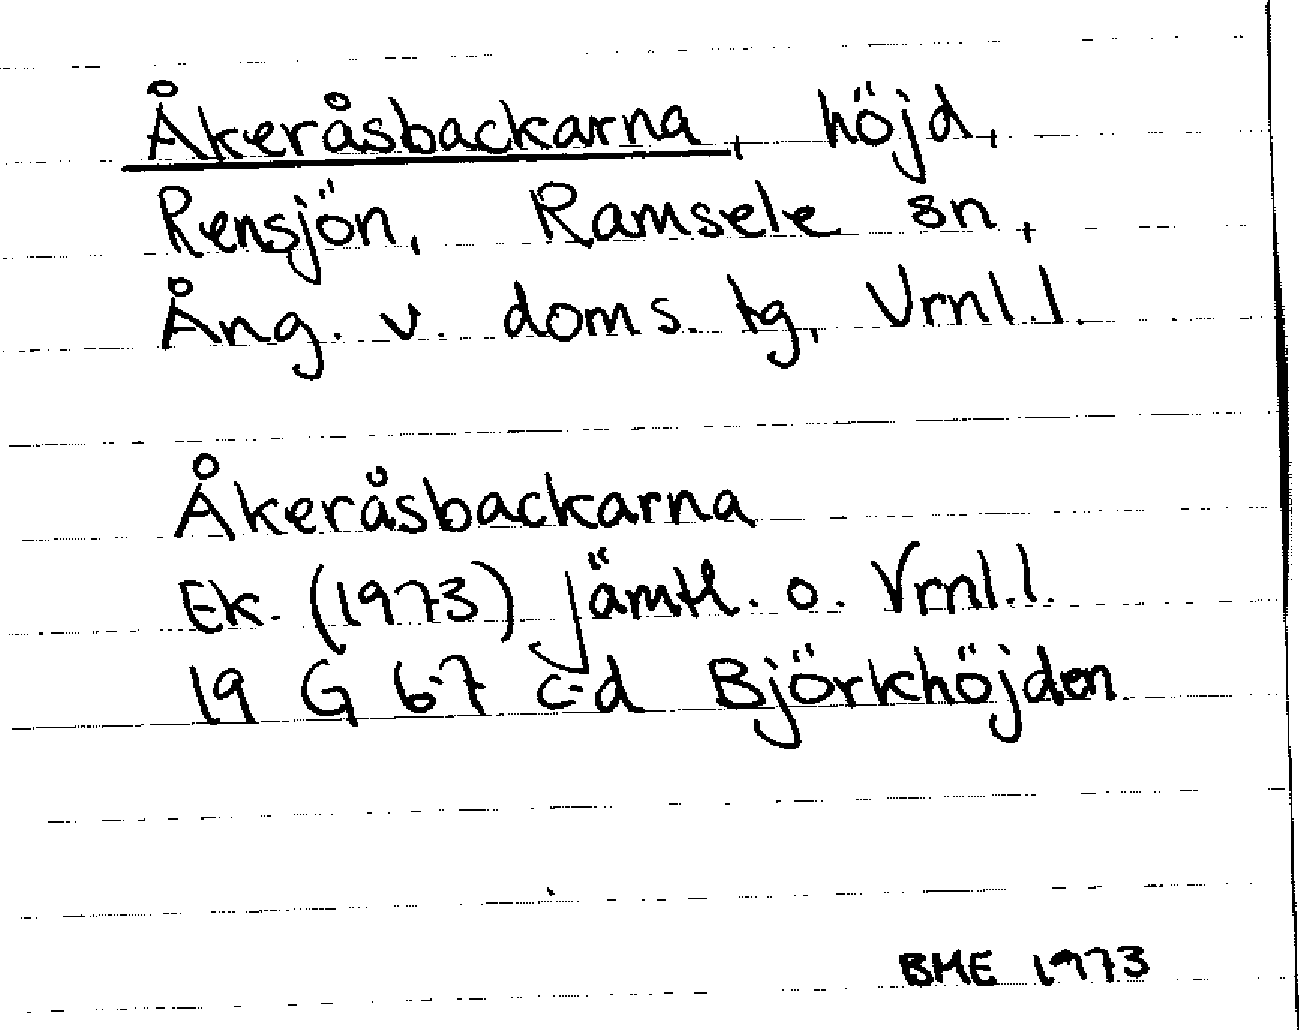 Åkeråsbackarna, höjd,
Rensjön, Ramsele sn,
Ång. v. doms. tg, Vrnl.l.
Åkeråsbackarna
Ek. (1973) Jämtl. o. Vrnl.l.
19 G 6-7 c-d Björkhöjden
BME 1973